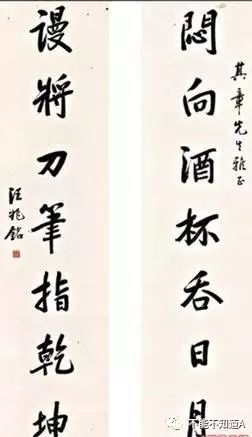 其章先生雅正
悶向酒杯吞日月
謾將刀筆指乾坤
汪兆銘
不能不知道A